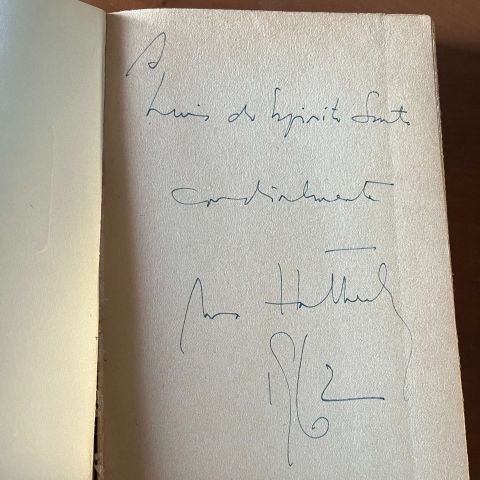 A
Luis do Espirito Santo
cordialmente
Ana Hatherly
1962